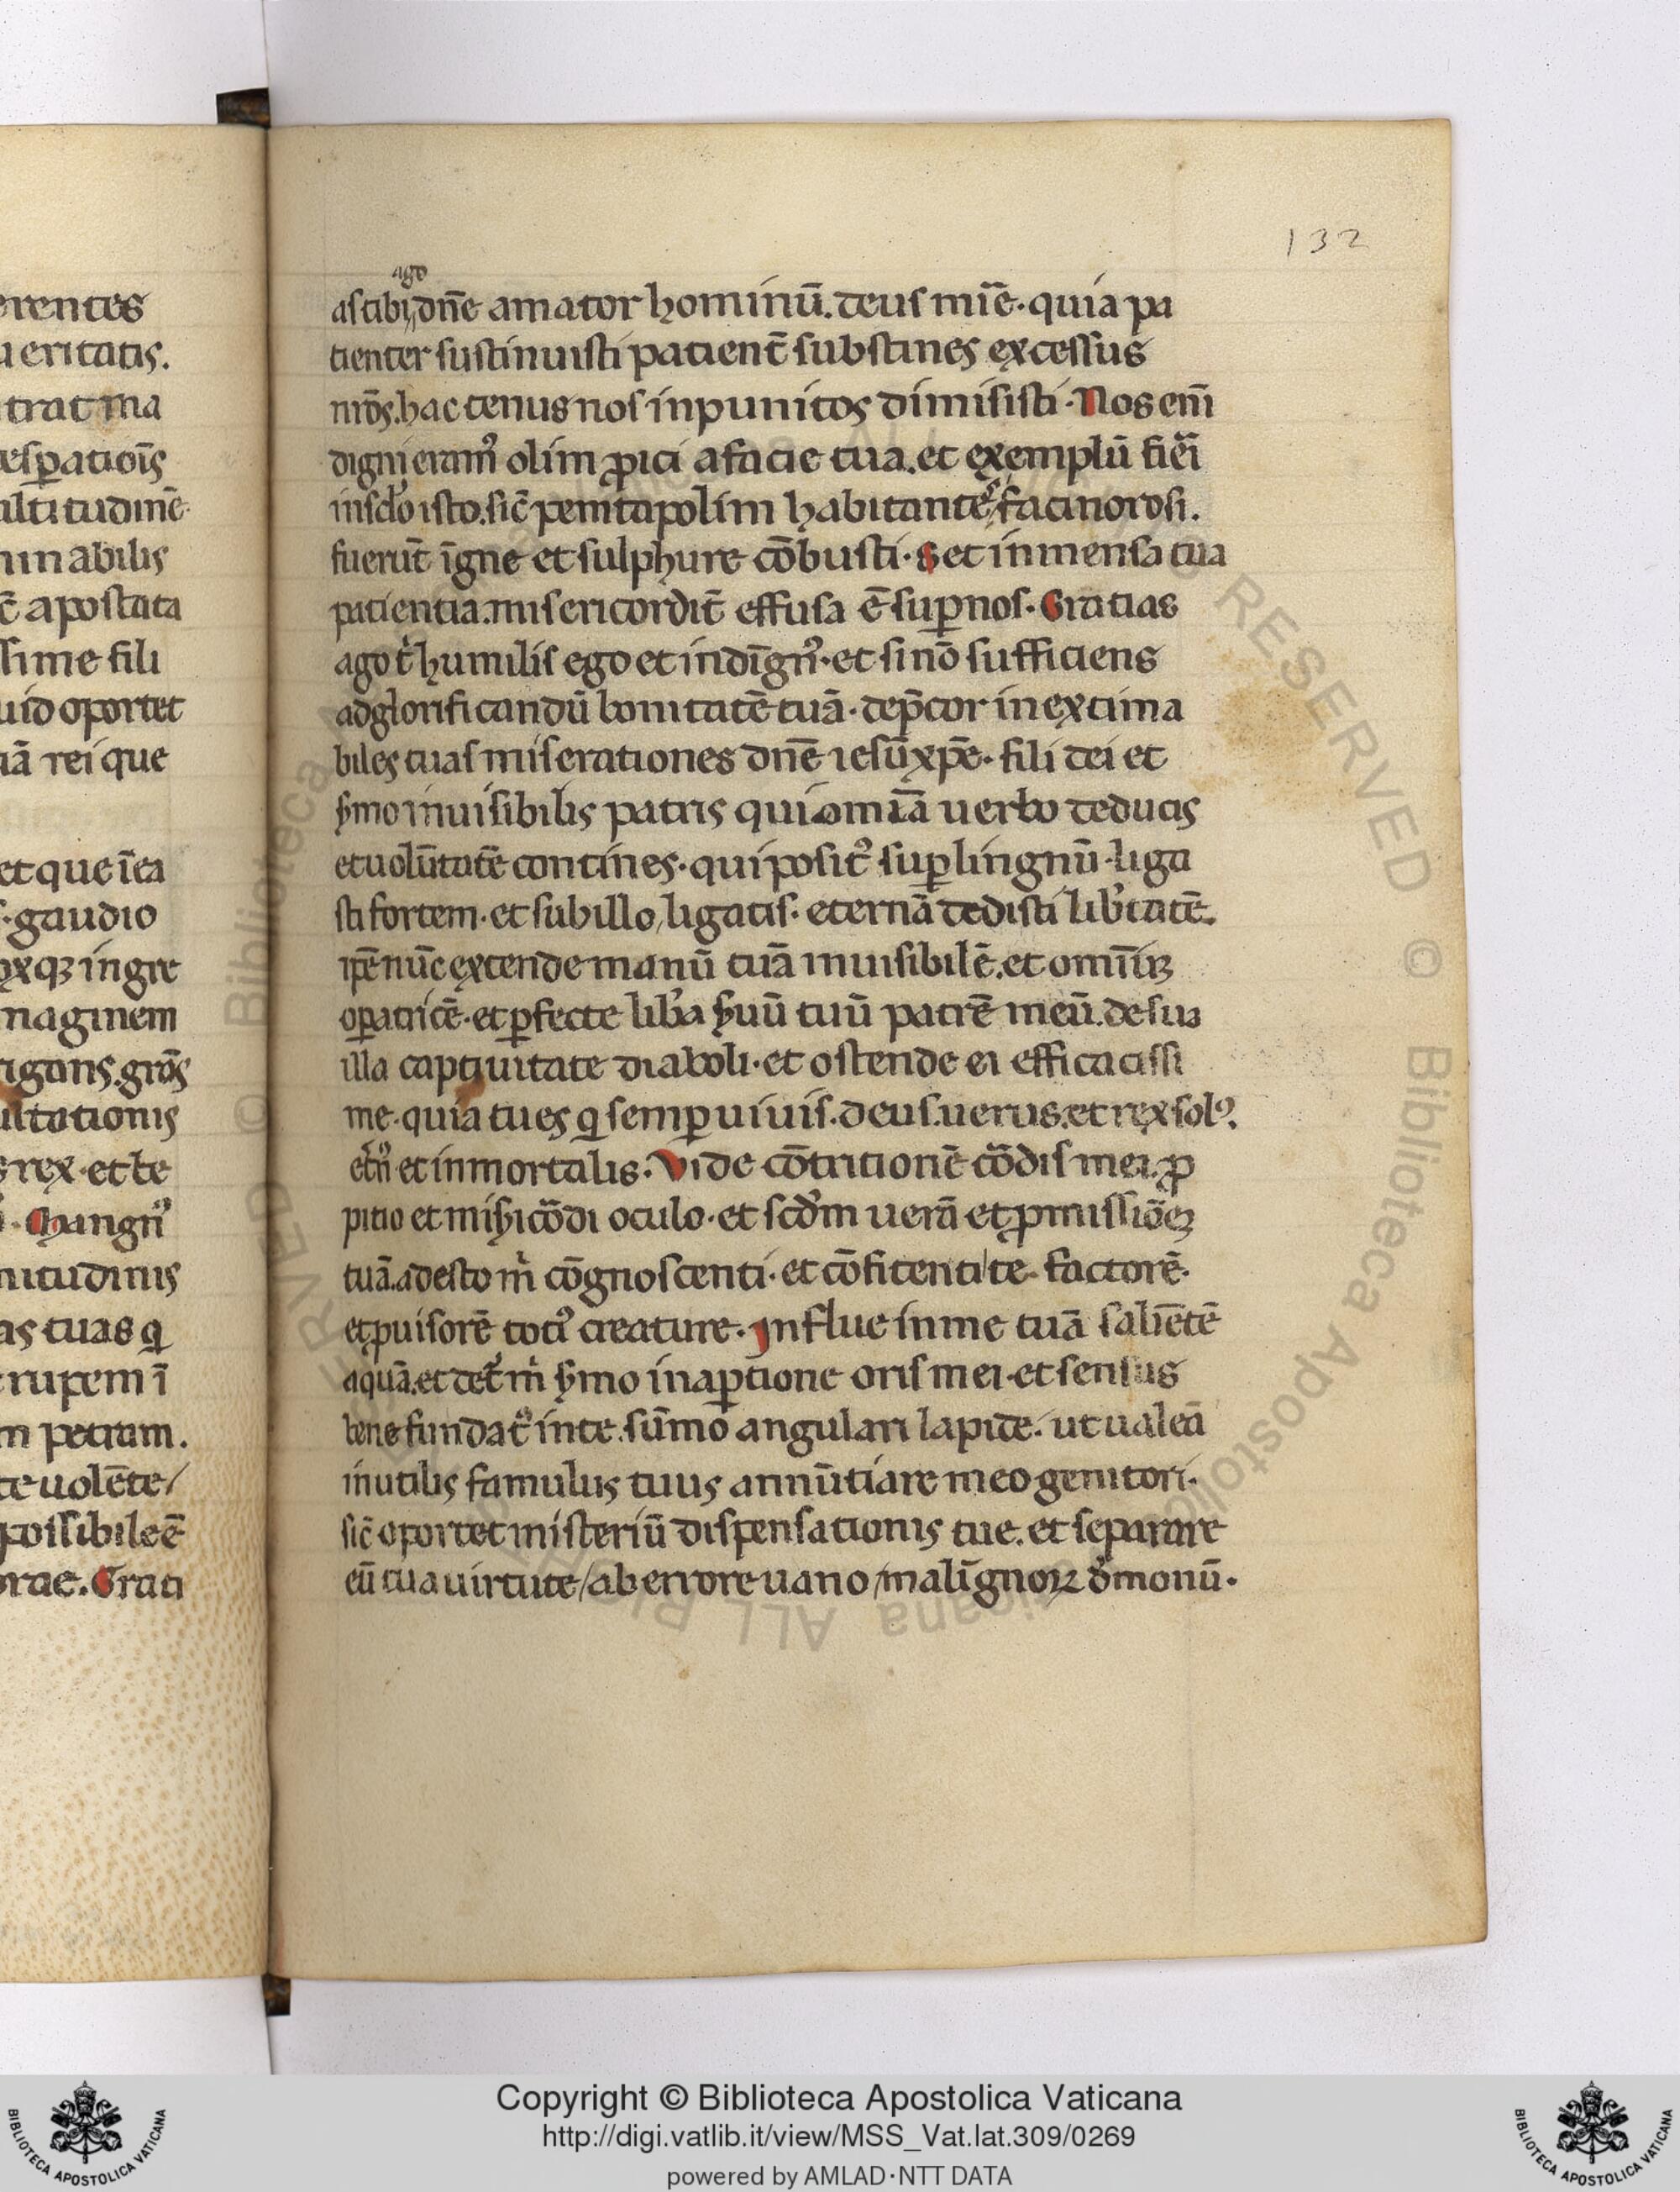 132
ago
as tibi dn̄e amator hominū. deus mīe. quia pa
tienter sustinuisti patient̄ substines excessus
nrōs. hactenus nos inpunitos dimisisti. Nos enī
digni eramꝰ olim ꝓici a facie tua. et exemplū fieī
in sclo isto. sic̄ pentapolim habitantes facinorosi.
fuerūt īgne et sulphure cōbusti. Set inmensa tua
patientia. misericordit̄ effusa ē suꝑ nos. Gratias
ago t̄ humilis ego et indīgnꝰ. et si nō sufficiens
ad glorificandū bonitatē tuā. dep̄cor inextima
biles tuas miserationes dn̄e iesū xp̄e. fili dei et
ẜmo inuisibilis patris qui om̄ia uerbo deducis
et uolūtatē contines. qui positꝰ suꝑ lingnū. liga
sti fortem. et sub illo ligatis. eternā dedisti lib̓tatē.
ip̄e nūc extende manū tuā inuisibilē. et omīū
oꝑatricē. et ꝑfecte lib̓a ẜuū tuū patrē meū. de sua
illa captiuitate diaboli. et ostende ei efficacissi
me. quia tu es qͥ semꝑ uiuis. deus uerus. et rex solꝰ.
et̓nꝰ et inmortalis. Vide cōtritionē cōdis mei. ꝓ
pitio et miẜicōdi oculo. et scd̓m uerā et ꝓmissiōēꝫ
tuā. adesto m̓ cōgnoscenti. et cōfitenti te factorē.
et ꝓuisorē totiꝰ creature. Influe in me tuā saliētē
aquā. et det̓ m̓ ẜmo in aꝑtione oris mei. et sensus
bene fundatꝰ in te. sūmo angulari lapide. ut ualeā
inutilis famulus tuus annūtiare meo genitori.
sic̄ oportet misteriū dispensationis tue. et separare
eū tua uirtute / ab errore uano / malīgnoꝝ d̓monū.
rentes
ueritatis.
trat ma
esꝑatiōis
altitudinē
minabilis
apostata
ssime fili
uid oportet
iā rei que
et que ī ea
gaudio
oxqꝫ ingre
maginem
rigans. grōs
ultationis
s rex. et be
Mangnꝰ
nitudinis
as tuas qͥ
rupem ī
m petram.
te uolēte /
possibile ē
rae. Grati
© Biblioteca Apostolica Vaticana ALL RIGHTS RESERVED
Copyright © Biblioteca Apostolica Vaticana
http://digi.vatlib.it/view/MSS_Vat.lat.309/0269
powered by AMLAD·NTT DATA
BIBLIOTECA APOSTOLICA VATICANA
BIBLIOTECA APOSTOLICA VATICANA